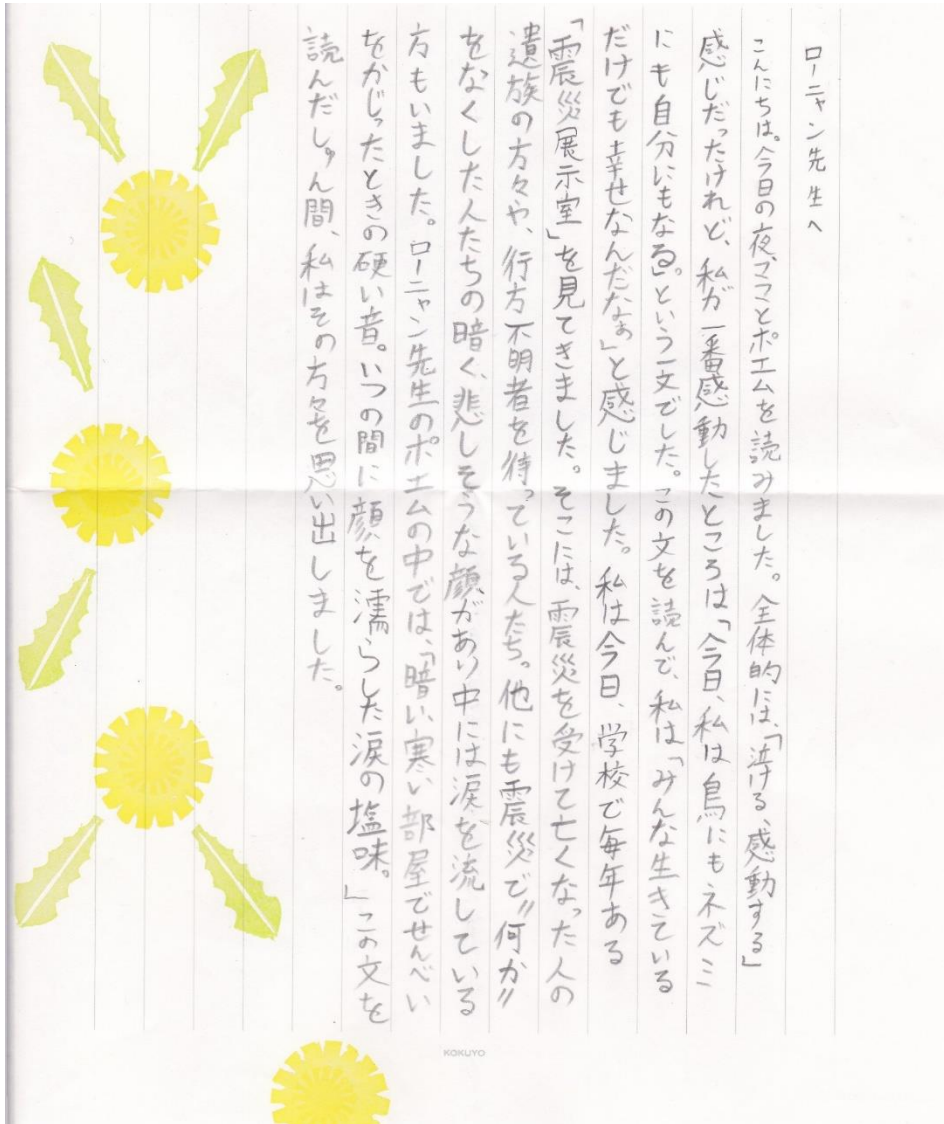 ローニャン先生へ
こんにちは。今日の夜、ママとポエムを読みました。全体的には、「泣ける、感動する」
感じだったけれど、私が一番感動したところは「今日、私は鳥にもネズミ
にも自分にもなる。」という一文でした。この文を読んで、私は「みんな生きている
だけでも幸せなんだなぁ」と感じました。私は今日、学校で毎年ある
「震災展示室」を見てきました。そこには、震災を受けて亡くなった人の
遺族の方々や、行方不明者を待っている人たち。他にも震災で〃何か〃
をなくした人たちの暗く、悲しそうな顔があり中には涙を流している
方もいました。ローニャン先生のポエムの中では、「暗い、寒い部屋でせんべい
をかじったときの硬い音。いつの間に顔を濡らした涙の塩味。」この文を
読んだしゅん間、私はその方々を思い出しました。
KOKUYO